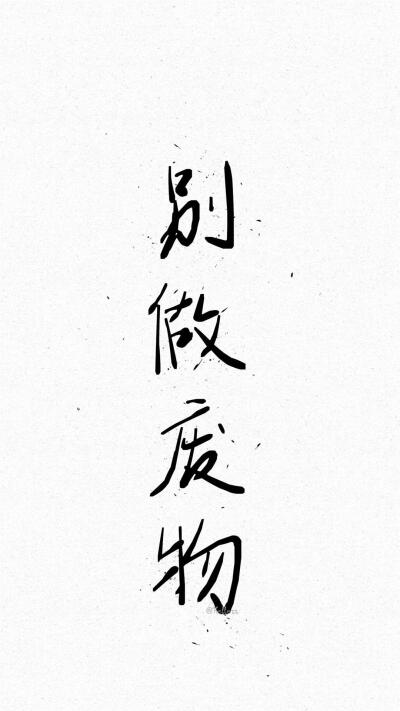 别做废物